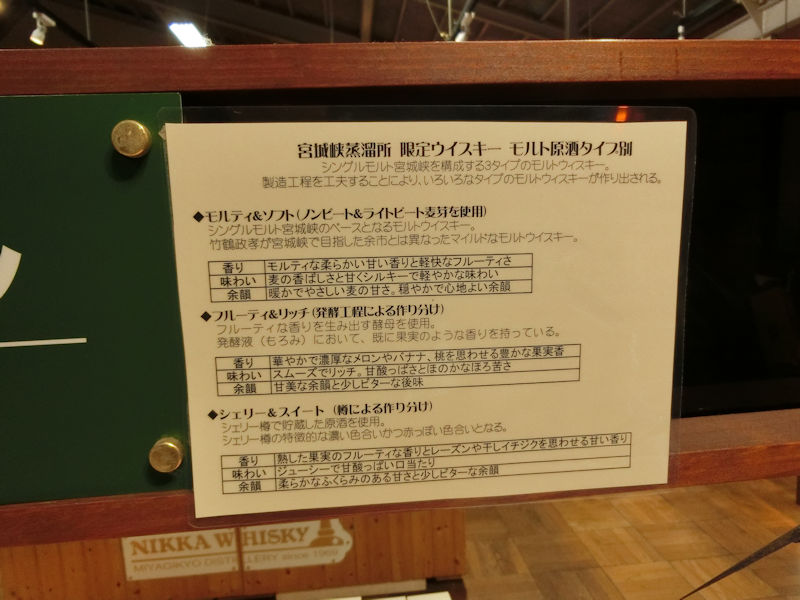 宮城峡蒸溜所 限定ウイスキー モルト原酒タイプ別
シングルモルト宮城峡を構成する3タイプのモルトウィスキー。
製造工程を工夫することにより、いろいろなタイプのモルトウィスキーが作り出される。
◆モルティ&ソフト(ノンピート&ライトピート麦芽を使用)
シングルモルト宮城峡のベースとなるモルトウイスキー。
竹鶴政孝が宮城峡で目指した余市とは異なったマイルドなモルトウイスキー。
香り モルティな柔らかい甘い香りと軽快なフルーティさ
味わい 麦の香ばしさと甘くシルキーで軽やかな味わい
余韻 暖かでやさしい麦の甘さ。穏やかで心地よい余韻
◆フルーティ&リッチ(発酵工程による作り分け)
フルーティな香りを生み出す酵母を使用。
発酵液(もろみ)において、既に果実のような香りを持っている。
香り 華やかで濃厚なメロンやバナナ、桃を思わせる豊かな果実香
味わい スムーズでリッチ。甘酸っぱさとほのかなほろ苦さ
余韻 甘美な余韻と少しビターな後味
◆シェリー&スイート (樽による作り分け)
シェリー樽で貯蔵した原酒を使用。
シェリー樽の特徴的な濃い色合いかつ赤っぽい色合いとなる。
香り 熟した果実のフルーティな香りとレーズンや干しイチジクを思わせる甘い香り
味わい ジューシーで甘酸っぱい口当たり
余韻 柔らかなふくらみのある甘さと少しビターな余韻
NIKKA WHISKY
MIYAGIKYO DISTILLERY since 1969